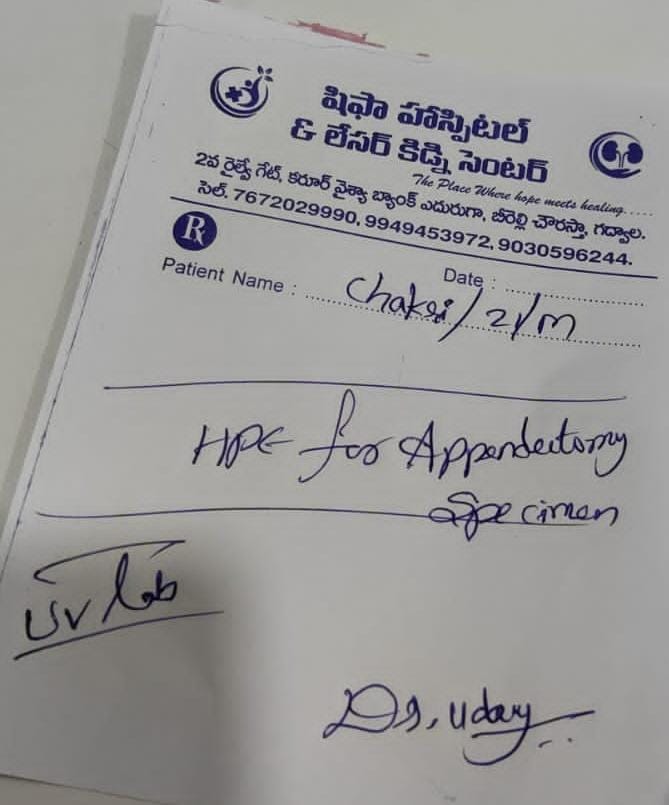 షిఫా హాస్పిటల్
& లేసర్ కిడ్ని సెంటర్
The Place Where hope meets healing.....
2వ రైల్వే గేట్, కరూర్ వైశ్యా బ్యాంక్ ఎదురుగా, బీరెల్లి చౌరస్తా, గద్వాల.
సెల్. 7672029990, 9949453972, 9030596244.
Rx
Date :
Patient Name : Chakri/21/M
HPE for Appendectomy
Specimen
UV lab
Dr. Uday